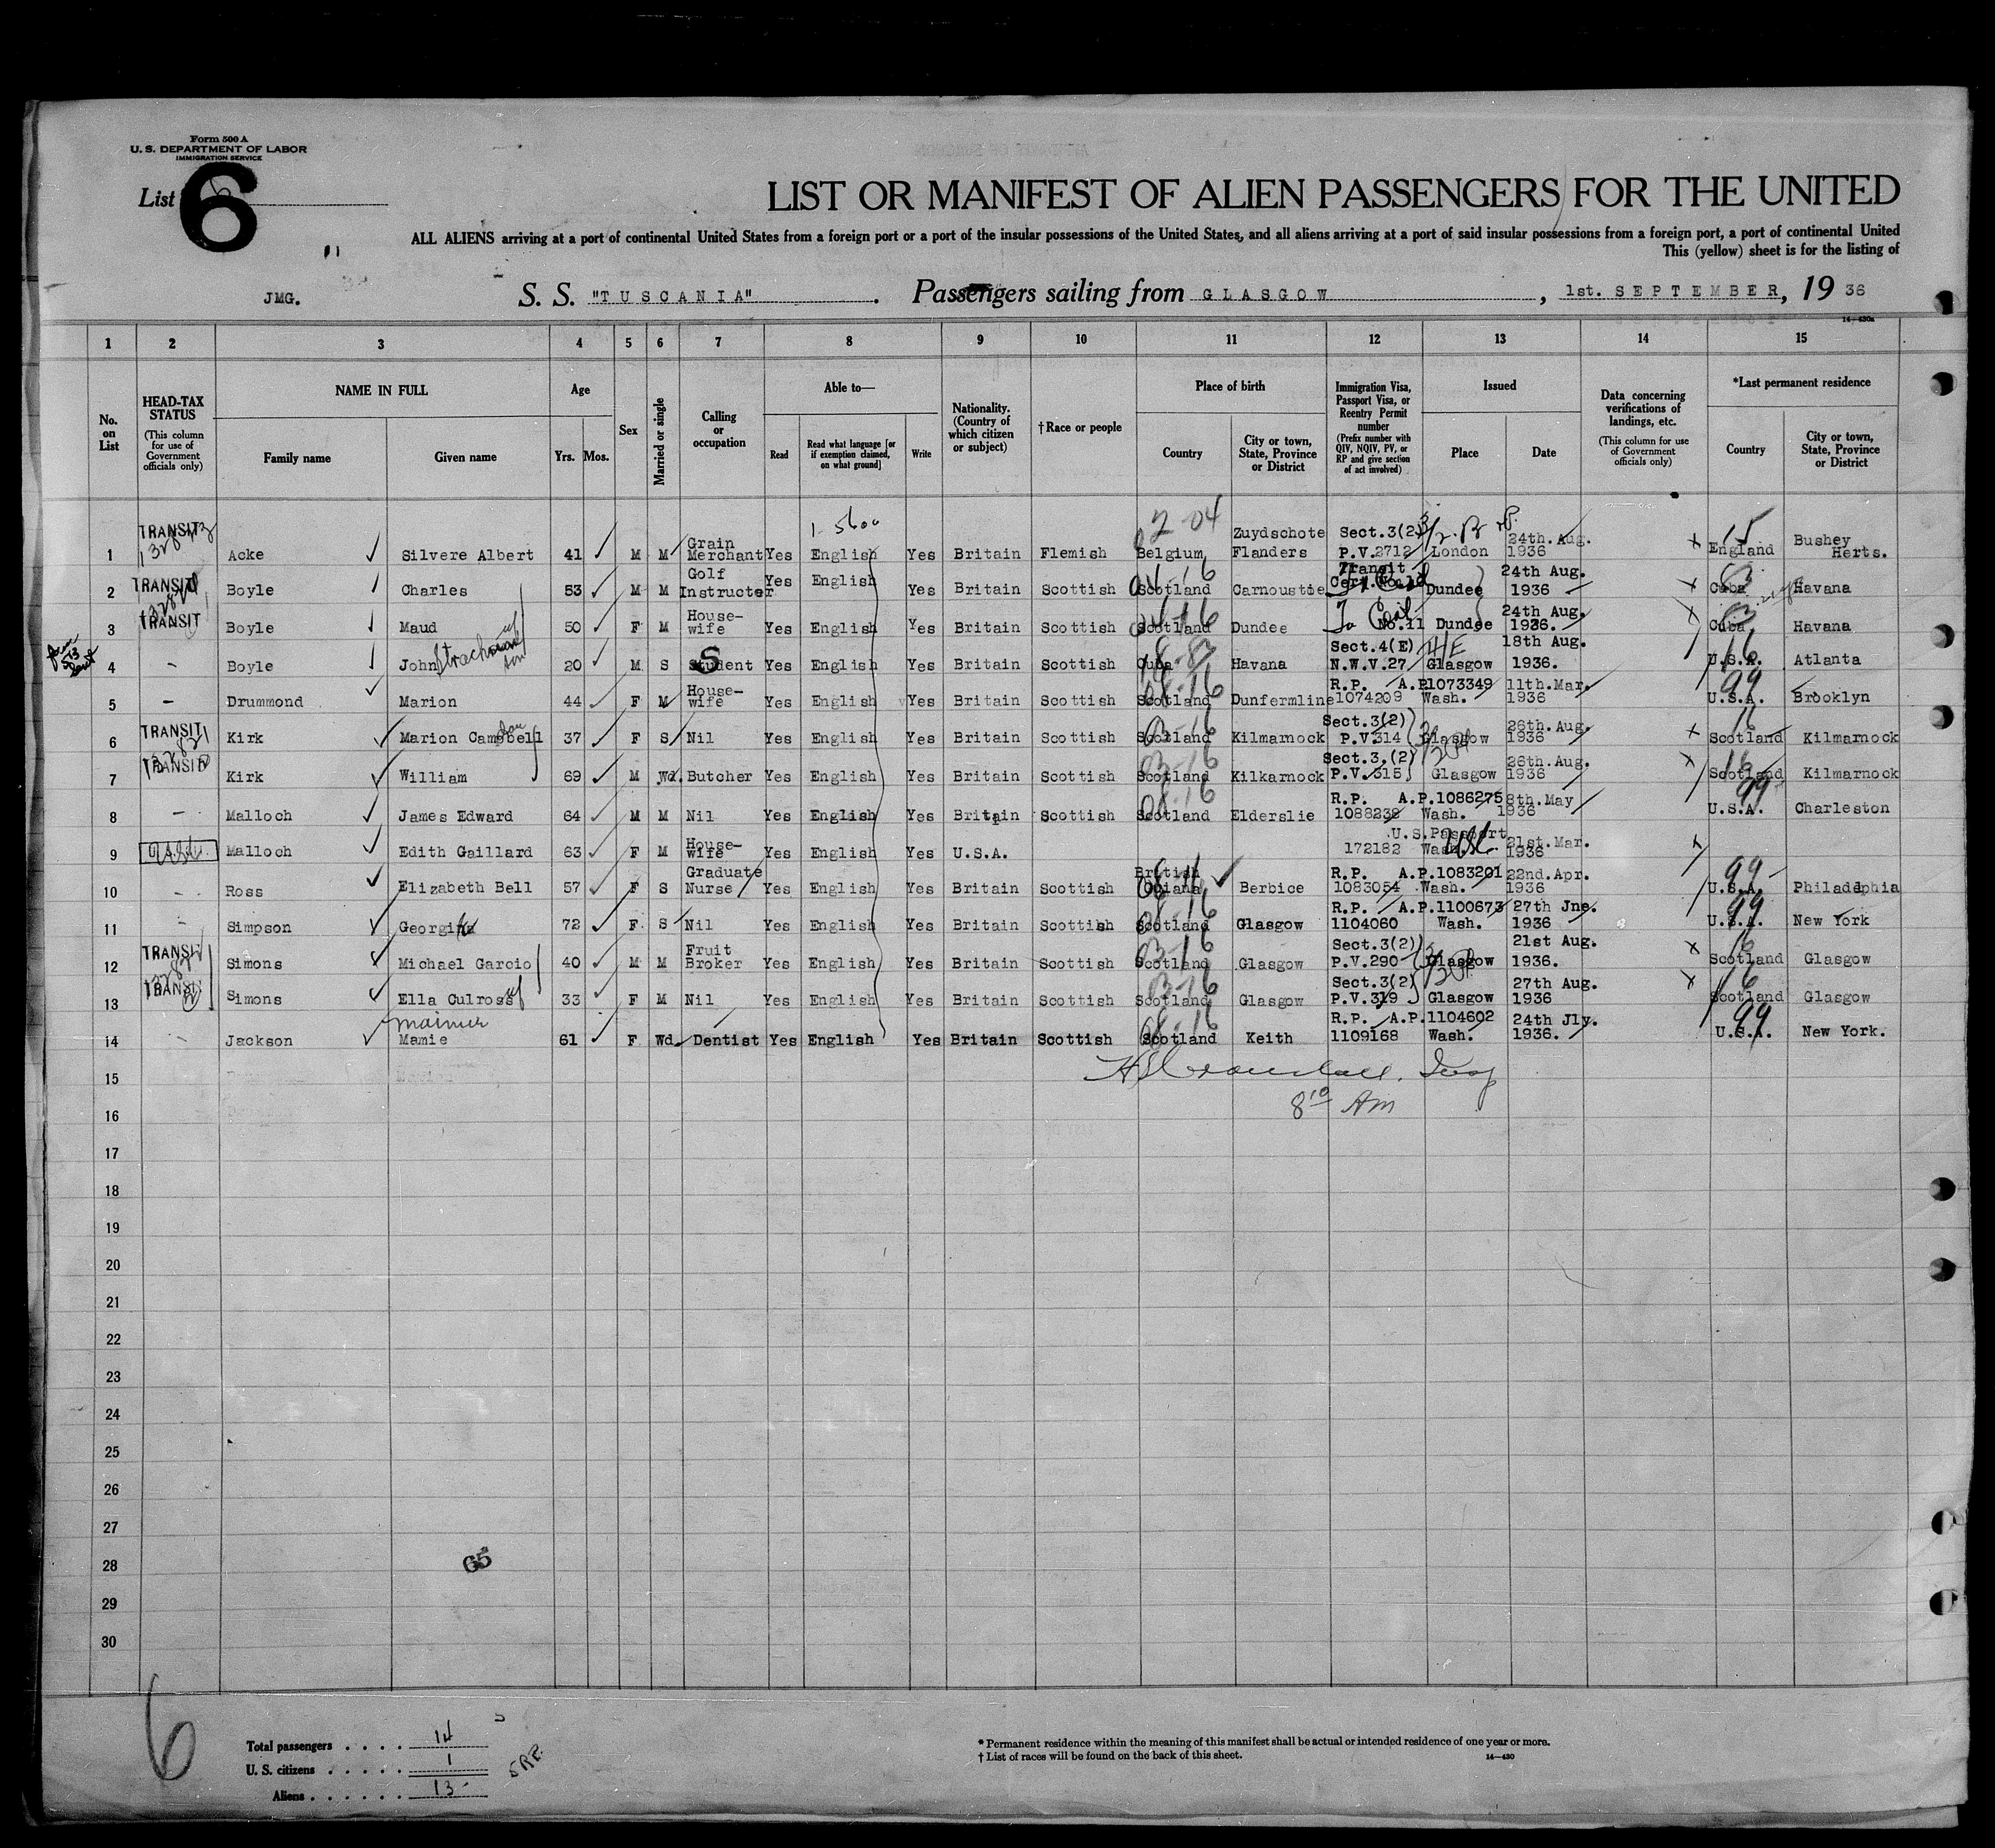 Form 500 A
U. S. DEPARTMENT OF LABOR
IMMIGRATION SERVICE
List 6
LIST OR MANIFEST OF ALIEN PASSENGERS FOR THE UNITED
ALL ALIENS arriving at a port of continental United States from a foreign port or a port of the insular possessions of the United States, and all aliens arriving at a port of said insular possessions from a foreign port, a port of continental United
This (yellow) sheet is for the listing of
JMG. S. S. "TUSCANIA" . Passengers sailing from GLASGOW , 1st. SEPTEMBER, 19 36
14—430a
1 2 3 4 5 6 7 8 9 10 11 12 13 14 15
No. on List
HEAD-TAX STATUS (This column for use of Government officials only)
NAME IN FULL
Family name Given name
Age
Yrs. Mos.
Sex
Married or single
Calling or occupation
Able to—
Read Read what language [or if exemption claimed, on what ground] Write
Nationality. (Country of which citizen or subject)
†Race or people
Place of birth
Country City or town, State, Province or District
Immigration Visa, Passport Visa, or Reentry Permit number (Prefix number with QIV, NQIV, PV, or RP and give section of act involved)
Issued
Place Date
Data concerning verifications of landings, etc. (This column for use of Government officials only)
*Last permanent residence
Country City or town, State, Province or District
1 TRANSIT Acke Silvere Albert 41 M M Grain Merchant Yes English Yes Britain Flemish Belgium Zuydschote Flanders Sect.3(2) P.V.2712 London 24th. Aug. 1936 England Bushey Herts.
2 TRANSIT Boyle Charles 53 M M Golf Instructor Yes English Yes Britain Scottish Scotland Carnoustie Transit Dundee 24th Aug. 1936 Cuba Havana
3 TRANSIT Boyle Maud 50 F M House-wife Yes English Yes Britain Scottish Scotland Dundee No.11 Dundee 24th Aug. 1936. Cuba Havana
4 - Boyle John Strachan 20 M S Student Yes English Yes Britain Scottish Cuba Havana Sect.4(E) N.W.V.27 Glasgow 18th Aug. 1936. U.S.A. Atlanta
5 - Drummond Marion 44 F M House-wife Yes English Yes Britain Scottish Scotland Dunfermline R.P. 1074209 A.P.1073349 Wash. 11th.Mar. 1936 U.S.A. Brooklyn
6 TRANSIT Kirk Marion Campbell 37 F S Nil Yes English Yes Britain Scottish Scotland Kilmarnock Sect.3(2) P.V.314 Glasgow 26th.Aug. 1936 Scotland Kilmarnock
7 TRANSIT Kirk William 69 M Wd. Butcher Yes English Yes Britain Scottish Scotland Kilkarnock Sect.3.(2) P.V.315 Glasgow 26th.Aug. 1936 Scotland Kilmarnock
8 - Malloch James Edward 64 M M Nil Yes English Yes Britain Scottish Scotland Elderslie R.P. 1088238 A.P.1086275 Wash. 8th.May 1936 U.S.A. Charleston
9 Malloch Edith Gaillard 63 F M House-wife Yes English Yes U.S.A. U.S.Passport 172182 Wash. 21st.Mar. 1936
10 - Ross Elizabeth Bell 57 F S Graduate Nurse Yes English Yes Britain Scottish British Guiana Berbice R.P. 1083054 A.P.1083201 Wash. 22nd.Apr. 1936 U.S.A. Philadephia
11 - Simpson Georgina 72 F S Nil Yes English Yes Britain Scottish Scotland Glasgow R.P. 1104060 A.P.1100673 Wash. 27th Jne. 1936 U.S.A. New York
12 TRANSIT Simons Michael Garcio 40 M M Fruit Broker Yes English Yes Britain Scottish Scotland Glasgow Sect.3(2) P.V.290 Glasgow 21st Aug. 1936. Scotland Glasgow
13 TRANSIT Simons Ella Culross 33 F M Nil Yes English Yes Britain Scottish Scotland Glasgow Sect.3(2) P.V.319 Glasgow 27th Aug. 1936 Scotland Glasgow
14 - Jackson Mamie 61 F Wd. Dentist Yes English Yes Britain Scottish Scotland Keith R.P. 1109168 A.P.1104602 Wash. 24th Jly. 1936. U.S.A. New York.
15
16 8 10 AM
17
18
19
20
21
22
23
24
25
26
27
28 65
29
30
6
Total passengers . . . . 14
U. S. citizens . . . . . 1
Aliens . . . . . . 13
* Permanent residence within the meaning of this manifest shall be actual or intended residence of one year or more.
† List of races will be found on the back of this sheet.
14—430